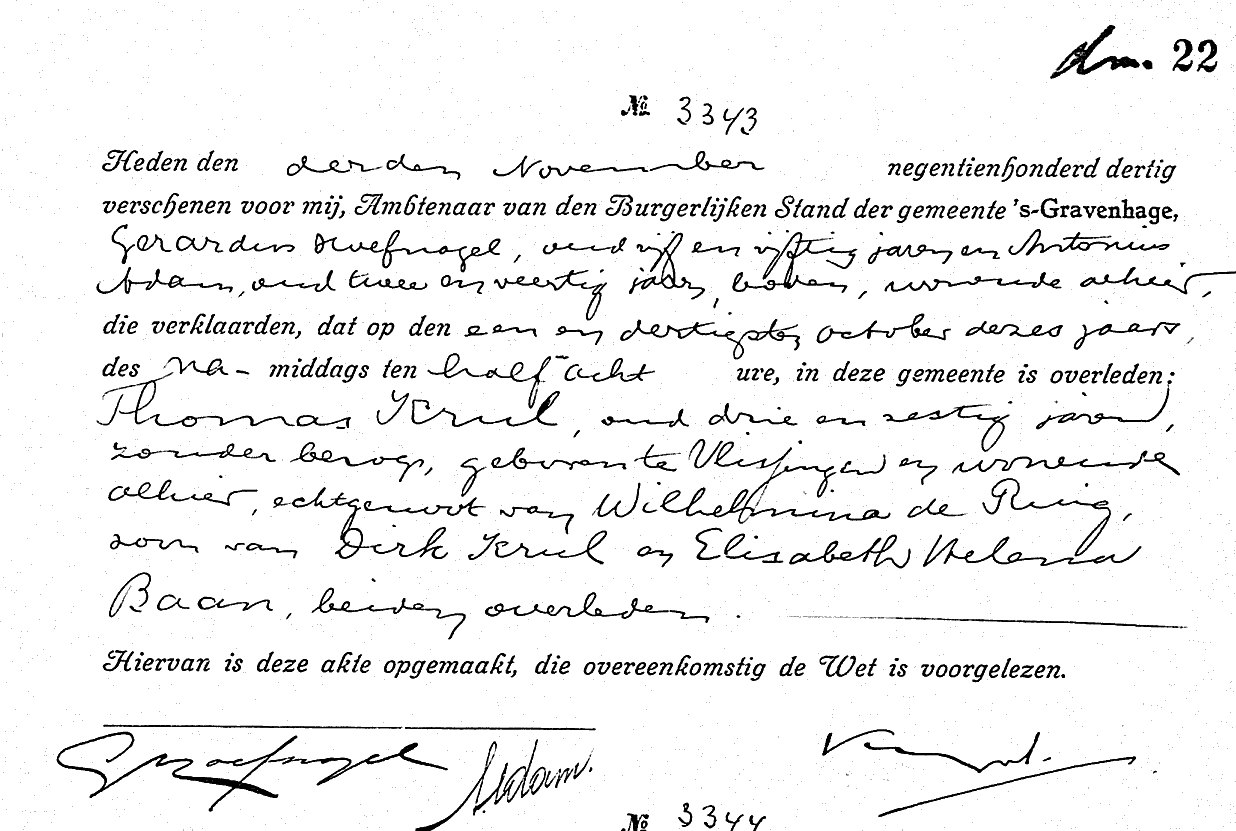 22
№ 3343
Heden den derden November negentienhonderd dertig
verschenen voor mij, Ambtenaar van den Burgerlijken Stand der gemeente 's-Gravenhage,
Gerardus Hoefnagel, oud vijf en vijftig jaren en Antonius
Adam, oud twee en veertig jaar, boden, wonende alhier,
die verklaarden, dat op den een en dertigsten October dezes jaars,
des na- middags ten half acht ure, in deze gemeente is overleden:
Thomas Krul, oud drie en zestig jaren,
zonder beroep, geboren te Vlissingen en wonende
alhier, echtgenoot van Wilhelmina de Ruig,
zoon van Dirk Krul en Elisabeth Helena
Baan, beiden overleden.
Hiervan is deze akte opgemaakt, die overeenkomstig de Wet is voorgelezen.
GHoefnagel AAdam.
№ 3344